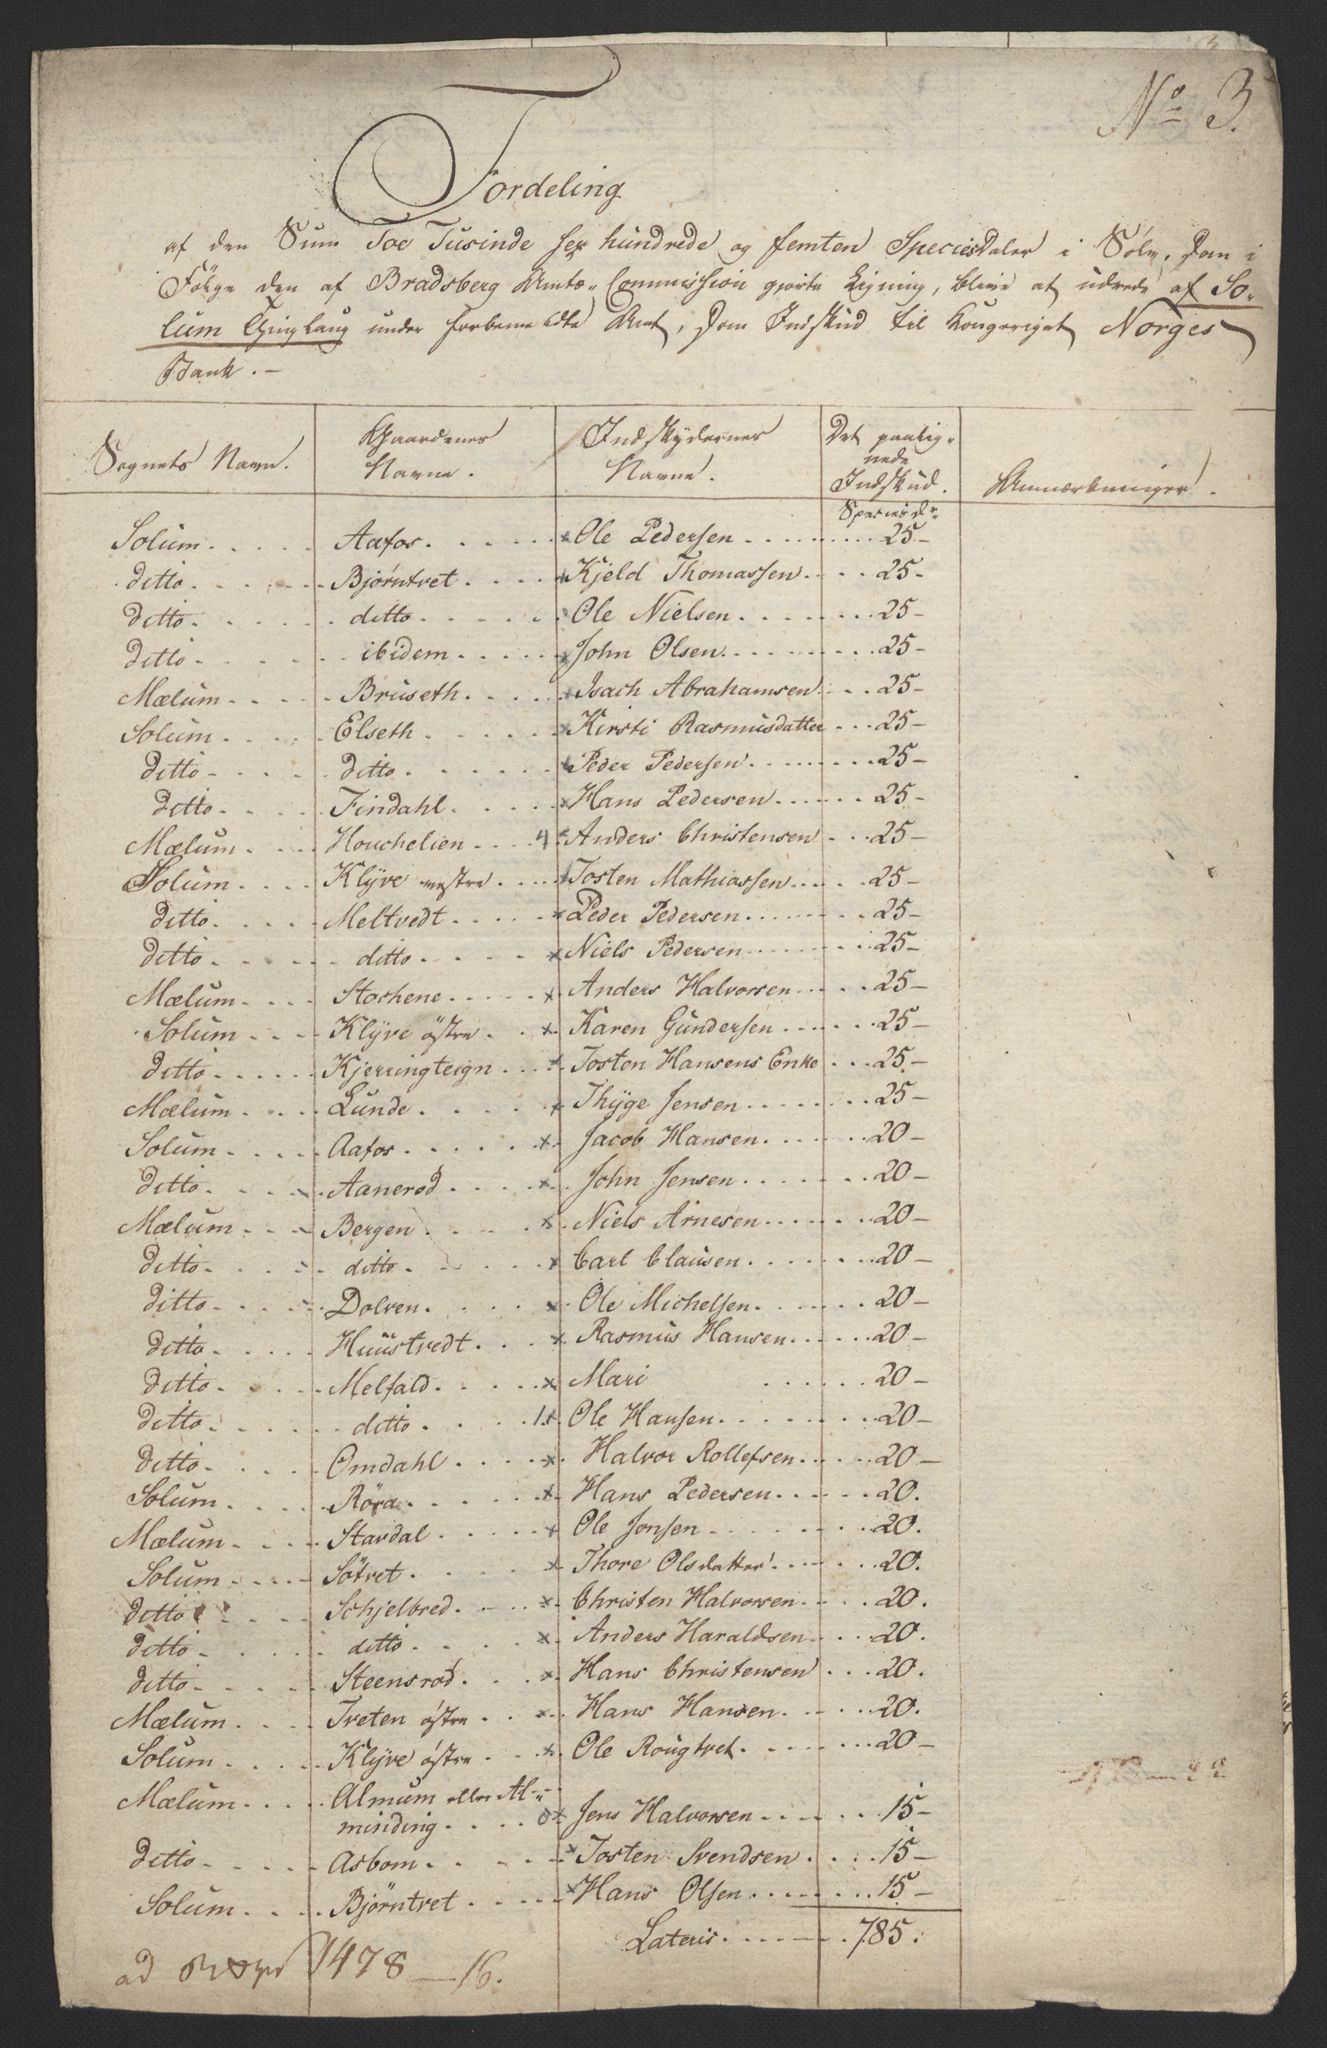 No 3.
Fordeling
af den Sum Toe Tusinde sex hundrede og femten SpeciesDaler i Sølv, som i
Følge den af Bradsberg Amts-Commission gjorte Ligning, bliver at udrede af So-
lum Thinglaug under forbemeldte Amt, som Indskud til Kongeriget Norges
Bank. -
Sognets Navn. Gaardenes Navne. Indskydernes Navne. Det paalig- nede Indskud. Anmærkninger.
Speciesdr
Solum Aafos. × Ole Pedersen 25-
ditto Bjørntvet × Kjeld Thomassen 25-
ditto ditto × Ole Nielsen 25-
ditto ibidem × John Olsen 25-
Mælum Bruseth × Isach Abrahamsen 25-
Solum Elseth × Kirsti Rasmusdatter 25-
ditto ditto × Peder Pedersen 25-
ditto Findahl × Hans Pedersen 25-
Mælum Houchelien 4 × Anders Christensen 25-
Solum Klÿve vestre × Tosten Mathiassen 25-
ditto Meltvedt × Peder Pedersen 25-
ditto ditto × Niels Pedersen 25-
Mælum Stochene × Anders Halvorsen 25-
Solum Klÿve østre × Karen Gundersen 25-
ditto Kjerringteign × Tosten Hansens Enke 25-
Mælum Lunde × Thÿge Jensen 25-
Solum Aafos × Jacob Hansen 20-
ditto Aanerød × John Jensen 20-
Mælum Bergen × Niels Arnesen 20-
ditto ditto × Carl Clausen 20-
ditto Dolven × Ole Michelsen 20-
ditto Huustvedt × Rasmus Hansen 20-
ditto Melfald × Mari 20-
ditto ditto 1 × Ole Hansen 20-
ditto Omdahl × Halvor Rollefsen 20-
Solum Röra × Hans Pedersen 20.
Mælum Stavdal × Ole Jonsen 20.
Solum Sötvet × Thore Olsdatter 20.
ditto Schjelbred × Christen Halvorsen 20.
ditto ditto × Anders Haraldsen 20.
ditto Steensrød × Hans Christensen 20.
Mælum Tveten østre × Hans Hansen 20.
Solum Klÿve østre × Ole Rougtvet 20-
Mælum Almum eller Al-
minding 0 × Jens Halvorsen 15-
ditto Asbom × Tosten Svendsen 15-
Solum Bjørntvet × Hans Olsen 15-
Lateris 785.
ad 1478-16.